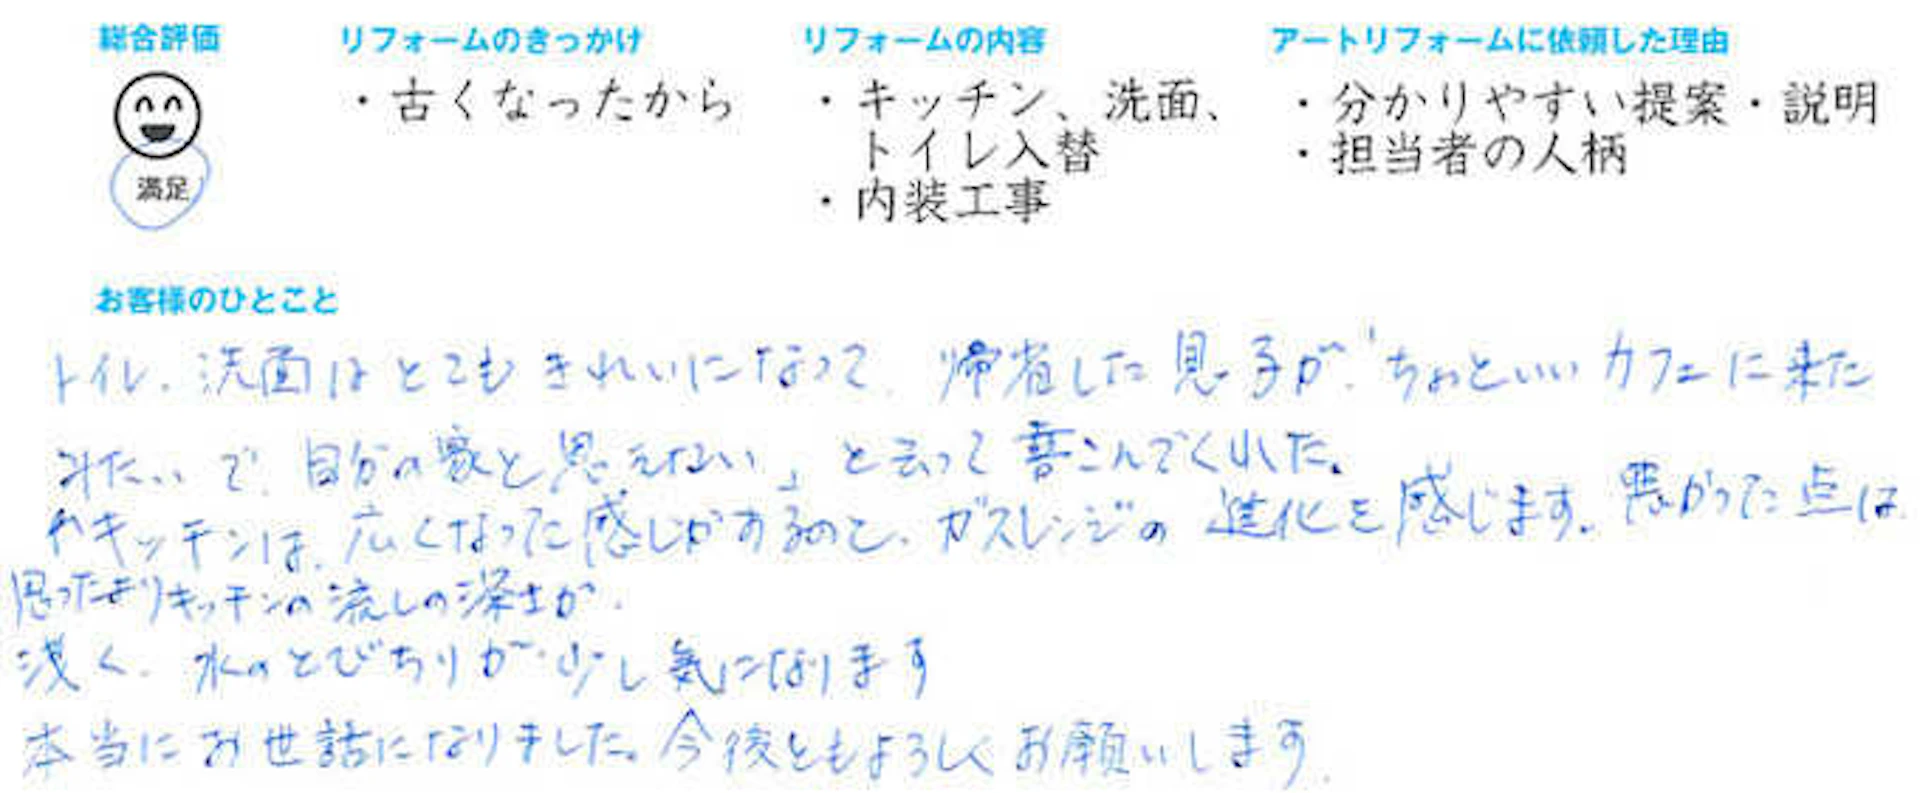 総合評価
リフォームのきっかけ
リフォームの内容
アートリフォームに依頼した理由
満足
・古くなったから
・キッチン、洗面、
トイレ入替
・内装工事
・分かりやすい提案・説明
・担当者の人柄
お客様のひとこと
トイレ、洗面はとてもきれいになって、帰省した息子が、「ちょっといいカフェに来た
みたいで、自分の家と思えない」と云って喜こんでくれた。
キッチンは、広くなった感じがするのと、ガスレンジの進化を感じます。悪かった点は
思ったよりキッチンの流しの深さが、
浅く、水のとびちりが少し気になります
本当にお世話になりました。今後ともよろしくお願いします。